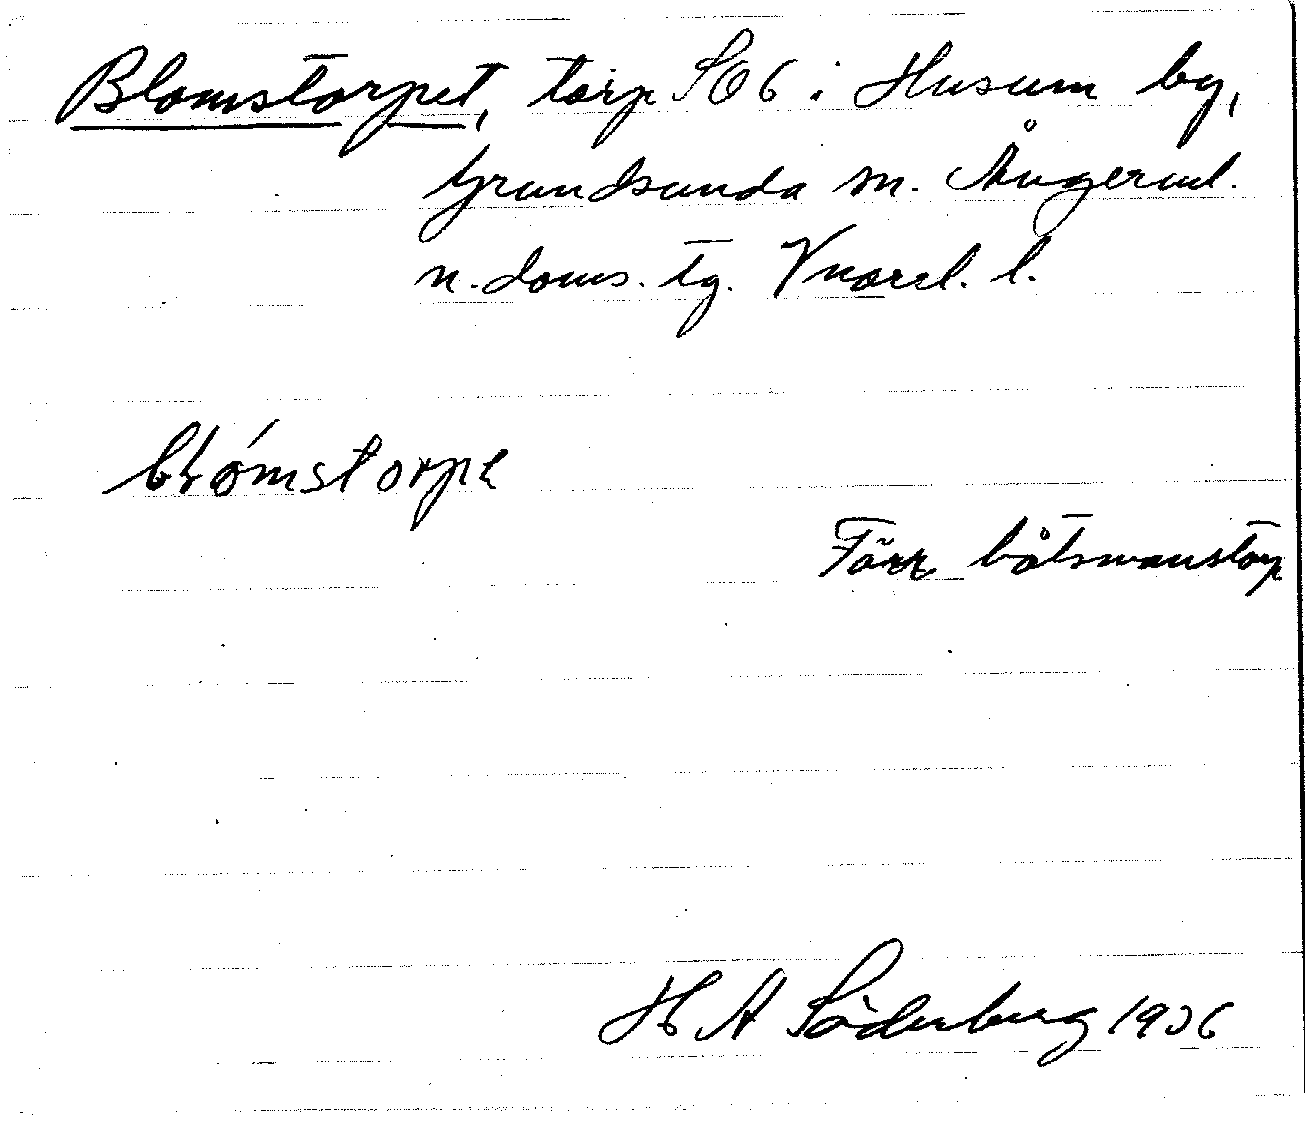 Blomstorpet, torp SO6 i Husum by,
Grundsunda sn. Ångerml.
n. doms. tg. Vnorrl. l.
blómstorpe
Förr båtsmanstorp
H A Söderberg 1936